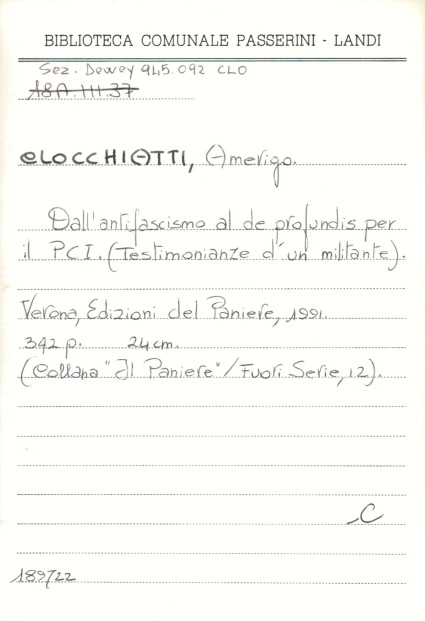 BIBLIOTECA COMUNALE PASSERINI - LANDI
Sez. Dewey 945.092 CLO
18A.III.37
CLOCCHIATTI, Amerigo.
Dall'antifascismo al de profundis per
il P.C.I. (Testimonianze d'un militante).
Verona, Edizioni del Paniere, 1991.
342 p. 24 cm.
(Collana "Il Paniere" / Fuori Serie, 12).
C
189722